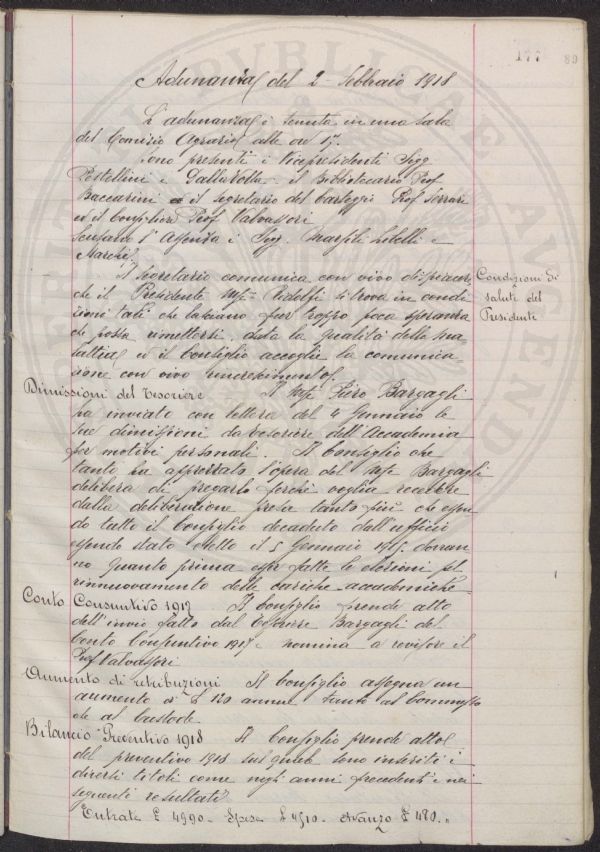 177 89
Adunanza del 2 febbraio 1918
L'adunanza è tenuta in una sala
del Comizio Agrario alle ore 17.
Sono presenti i Vicepresidenti Sigg.
Pestellini e Dalla Volta - il Bibliotecario Prof
Baccarini ed il Segretario del carteggio Prof Ferrari
ed il Consigliere Prof Valvassori
Scusano l'assenza i Sigg. Marsili Libelli e
Marchi.
Il Segretario comunica con vivo dispiacere
Condizioni di
che il Presidente Mse Ridolfi si trova in condi
salute del
zioni tali che lasciano pur troppo poca speranza
Presidente
che possa rimettersi, data la qualità della ma-
lattia ed il Consiglio accoglie la comunica
zione con vivo rincrescimento.
Dimissioni del Tesoriere Il Mse Piero Bargagli
ha inviato con lettera del 4 Gennaio le
sue dimissioni da tesoriere dell'Accademia
per motivi personali. Il Consiglio che
tanto ha apprezzato l'opera del Mse Bargagli
delibera di pregarlo perché voglia recedere
dalla deliberazione presa tanto più che essen
do tutto il Consiglio decaduto dall'ufficio
essendo stato eletto il 5 Gennaio 1915. dovran
no quanto prima esser fatte le elezioni pel
rinnuovamento delle cariche accademiche
Conto Consuntivo 1917 Il Consiglio prende atto
dell'invio fatto dal Tesoriere Bargagli del
Conto Consuntivo 1917 e nomina a revisore il
Prof Valvassori
Aumento di retribuzioni Il Consiglio assegna un
aumento di £ 120 annue tanto al Commesso
che al custode.
Bilancio Preventivo 1918 Il Consiglio prende atto
del preventivo 1918 sul quale sono inseriti i
diversi titoli come negli anni precedenti e nei
seguenti resultati
Entrata £ 4990. Spesa £ 4510. Avanzo £ 480.